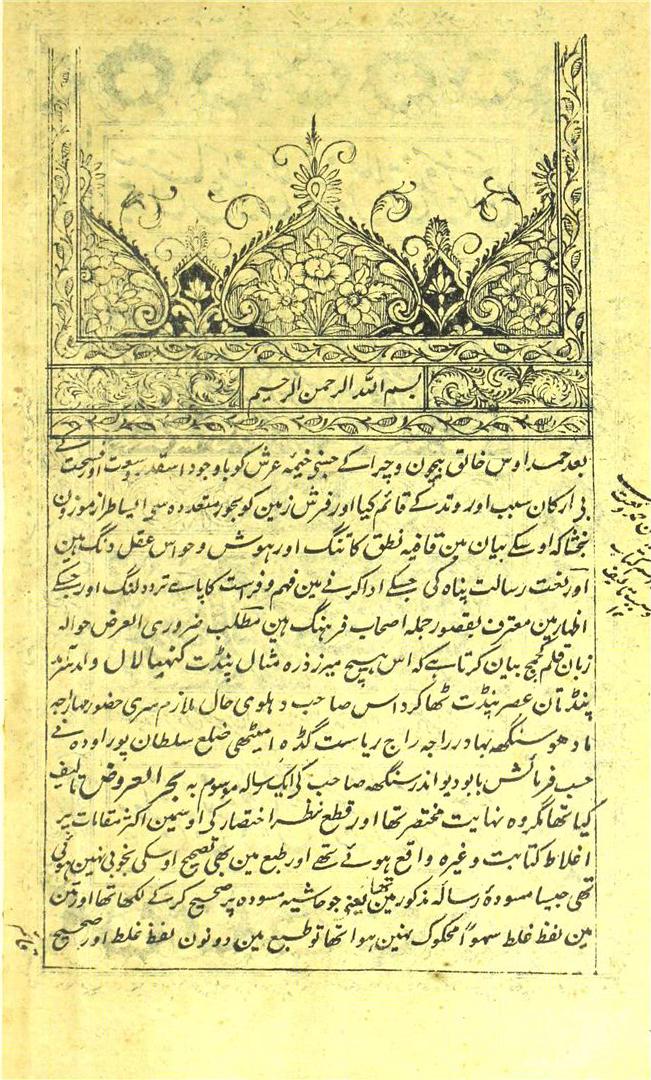 بسم اللہ الرحمن الرحیم
بعد حمد اوس خالق بیچون وچرا کے جسنی خیمۂ عرش کو باوجود اسقدر وسعت اور فسحت کے
بی ارکان سبب اور وتد کے قائم کیا اور فرش زمین کو بحور متعددہ سی انبساط از موزون
بخشا کہ اوسکے بیان مین قافیہ نطق کا تنگ اور ہوش وحواس عقل دنگ ہین
اور نعت رسالت پناہ کی جسکے ادا کرنے مین فہم وفرہست کا پاے تردد لنگ اور جسکے
اظہار مین معترف بقصور جملہ اصحاب فرہنگ ہین مطلب ضروری العرض حوالہ
زبان قلم کجمج بیان کرتا ہے کہ اس ہیچ میرز ذرہ مثال پنڈت کنہیا لال ولد تلمذ
پنڈتان عصر پنڈت ٹھاکر داس صاحب دہلوی حال ملازم سری حضور مہاراجہ
مادھو سنگھہ بہادر راجہ راج ریاست گڈہ امیٹھی ضلع سلطان پور اودہ نے
حسب فرمائش بابو دیو اندر سنگھہ صاحب کی ایک رسالہ موسوم بہ بحر العروض تالیف
کیا تھا مگر وہ نہایت مختصر تھا اور قطع نظر اختصار کی اوسمین اکثر مقامات پر
اغلاط کتابت وغیرہ واقع ہوئے تھے اور طبع مین بھی تصحیح اوسکی بخوبی نہین ہوئی
تھی جیسا مسودۂ رسالہ مذکور مین تھا یعنی جو حاشیہ مسودہ پر صحیح کرکے لکھا تھا اور متن
مین لفظ غلط سہواً محکوک نہین ہوا تھا تو طبع مین دونون لفظ غلط اور صحیح